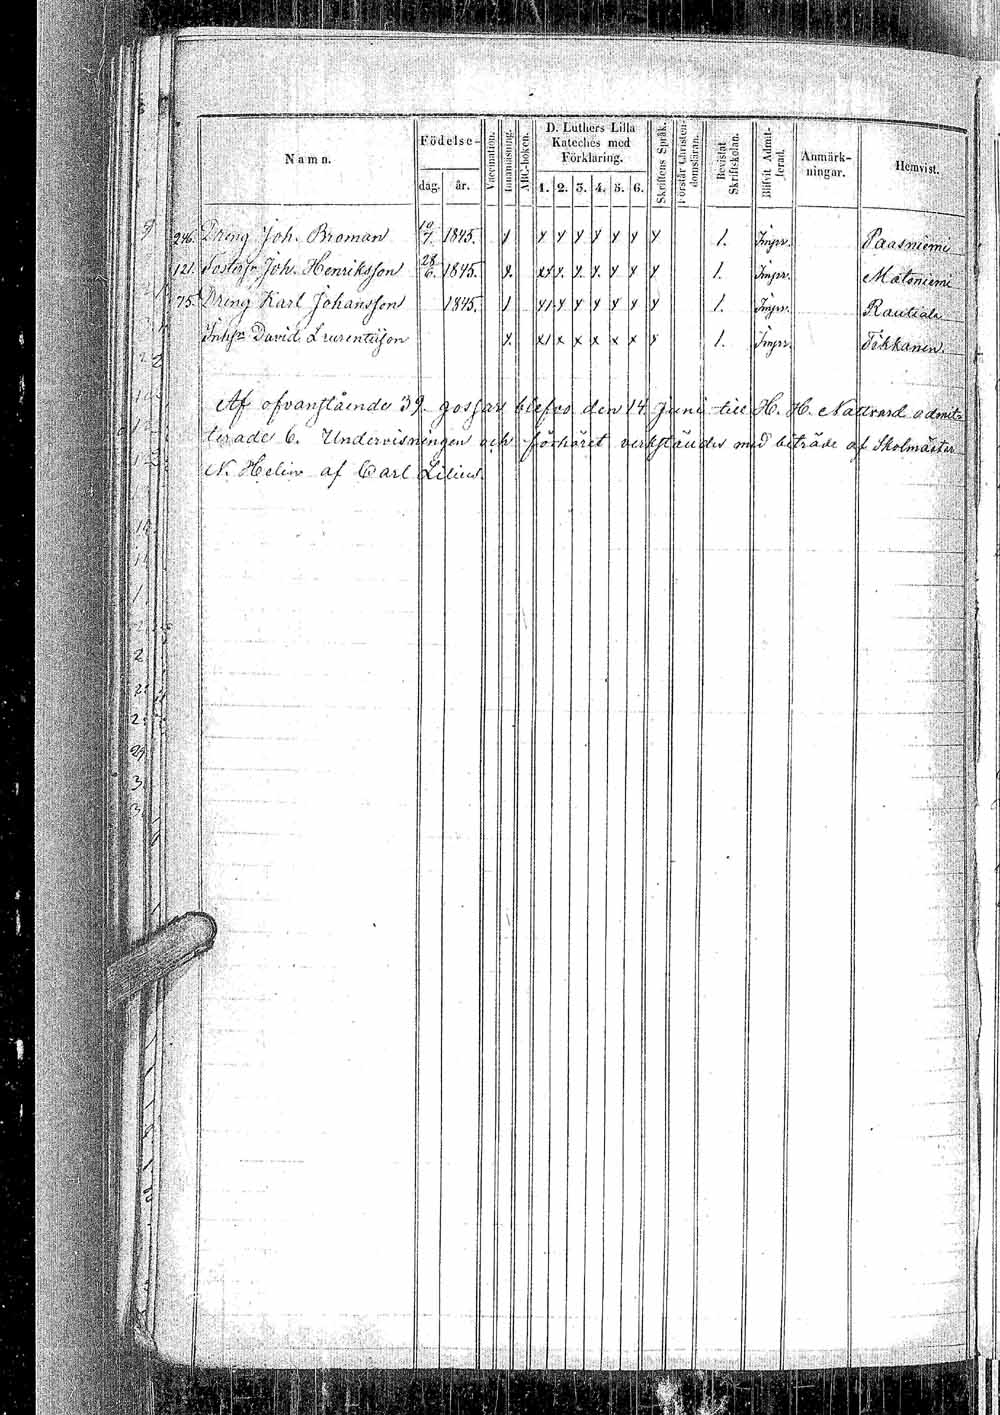 Namn. Födelse- dag. år. Vaccination. Innanläsning. ABC-boken. D. Luthers Lilla Kateches med Förklaring. 1. 2. 3. 4. 5. 6. Skriftens Språk. Förstår Christendomsläran. Bevistat Skriftskolan. Blifvit Admitterad. Anmärkningar. Hemvist.
246. Dreng Joh. Broman 10/7. 1845. x x x x x x x x 1. Impr. Paasniemi
121. Fosterss. Joh. Henriksson 28/6. 1845. x. xx x. x. x. x x x 1. Impr. Matoniemi
75. Dreng Karl Johansson 1845. 1 x1 x x x x x x 1. Impr. Rautiala
Inhs. David Laurentiison x. x1 x x x x x x 1. Impr. Tikkanen.
Af ofvanstående 39. gossar blefvo den 14 Juni till H. H. Nattvard admit-
terade 6. Undervisningen och förhöret verkställdes med biträde af Skolmästar
N. Helin af Carl Lilius.